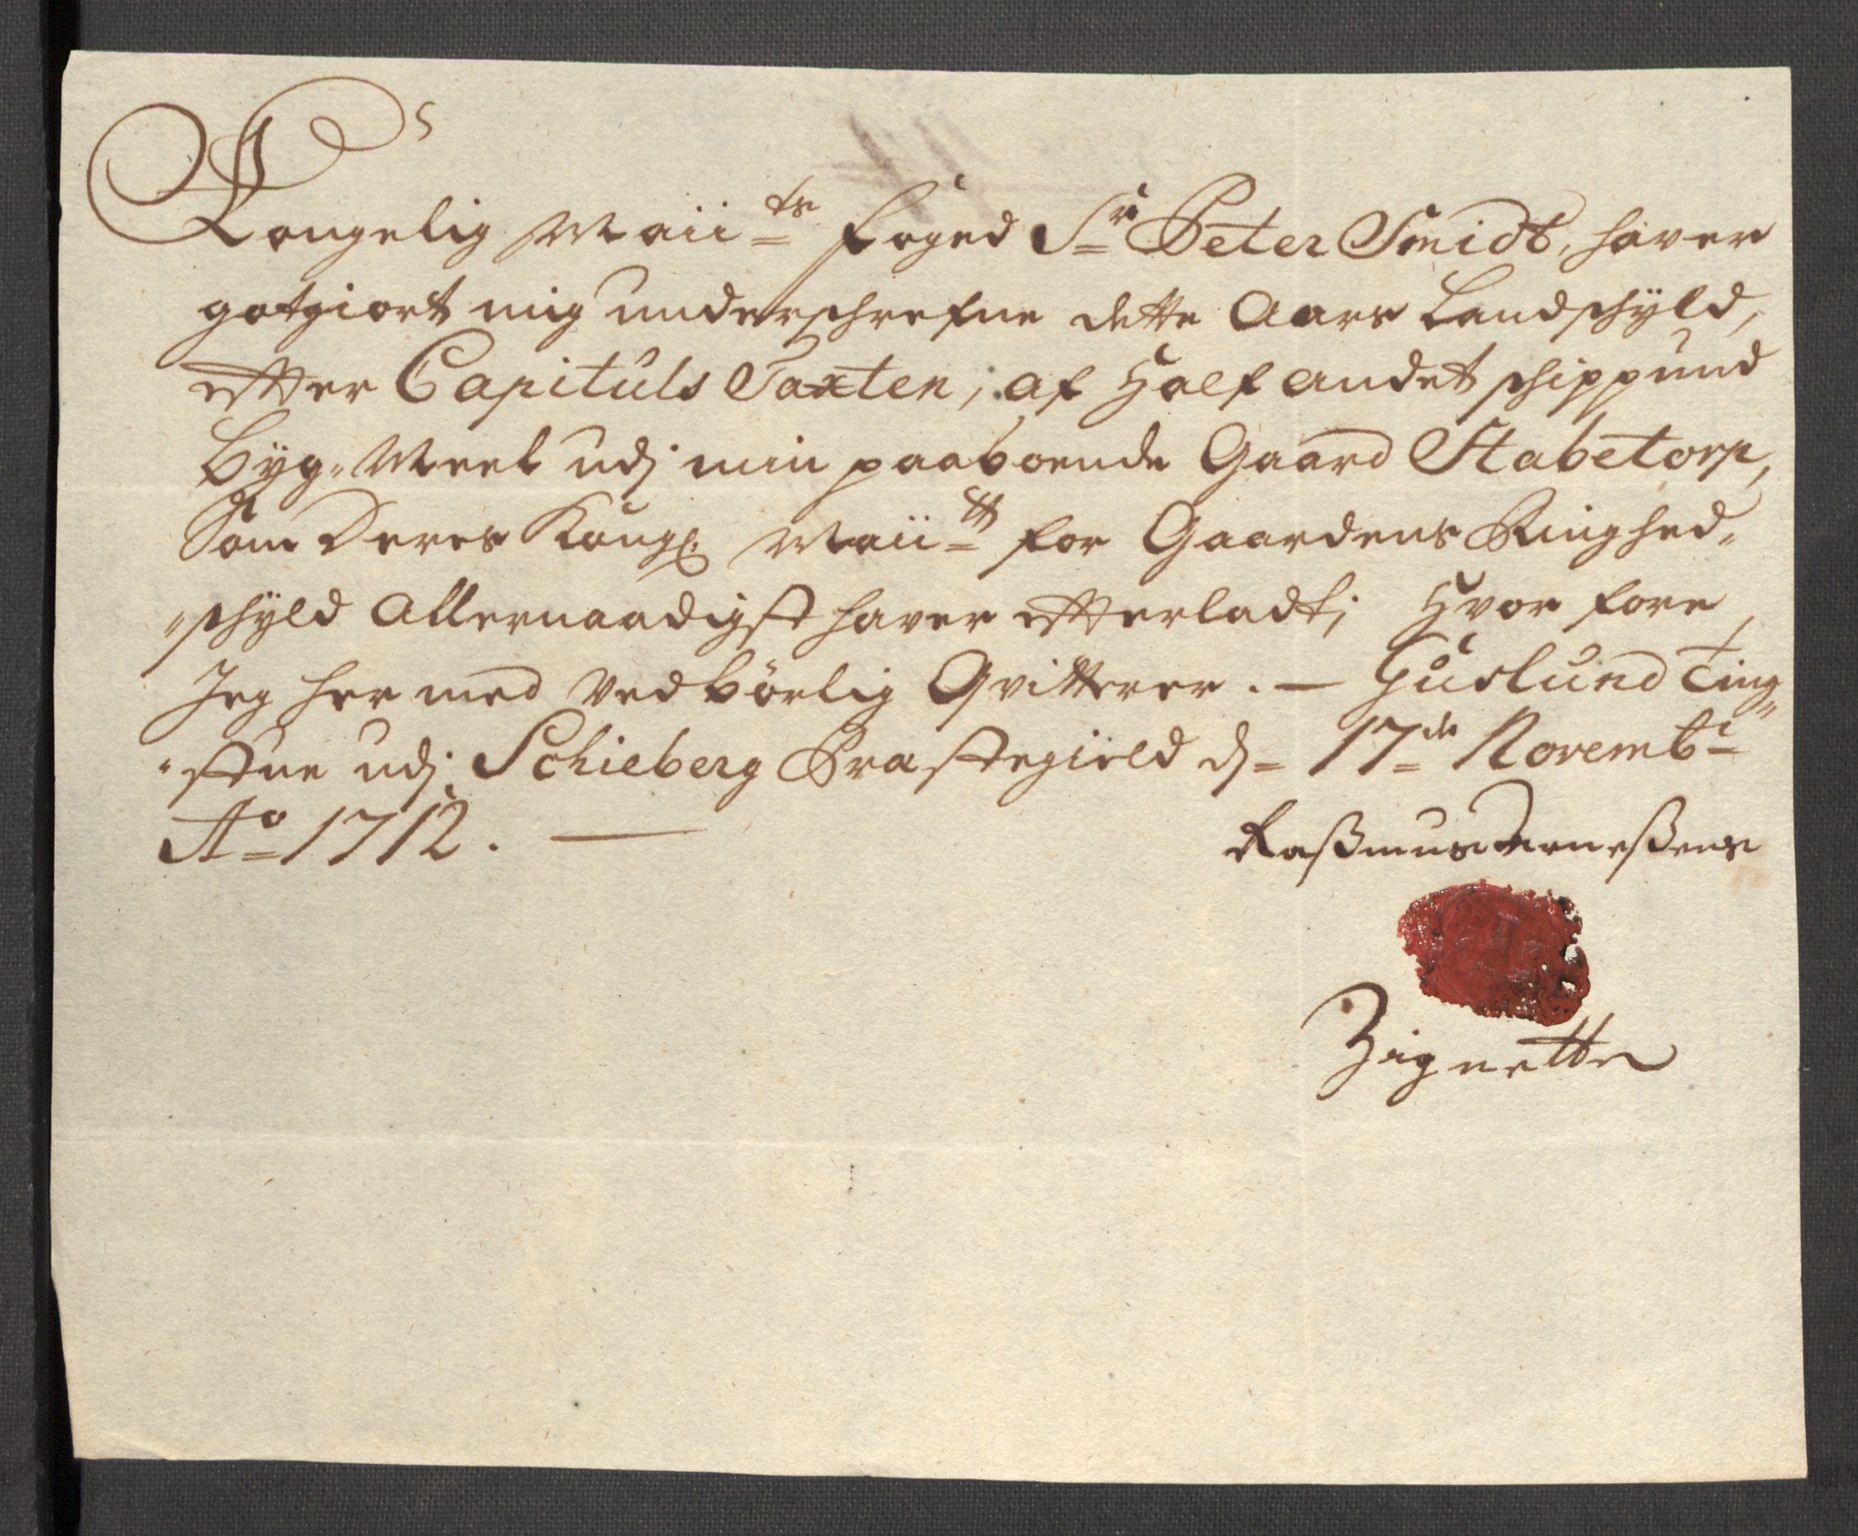 Kongelig Maiits Foged Sr Peter Smidt, haver
gotgiort mig underschrefne dette Aars Landschyld,
efter Capituls Taxten, af Half andet schippund
Byg-Meel udj min paaboende Gaard Stabetorp,
Som Deres Kongl. Maiitt for Gaardens Ringhed-
schyld Allernaadigst haver efterladt; Hvor fore
Jeg her med vedbörlig Qvitterer. — Guslund Ting-
stue udj Schieberg Præstegield dj 17de Novembr
Ao 1712. —
Rasmus Arneßens
Zignette